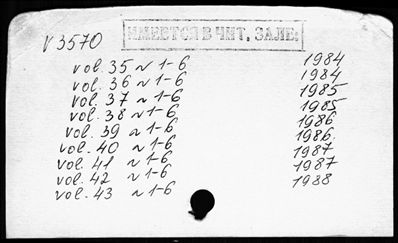 V 3570
ИМЕЕТСЯ В ЧИТ. ЗАЛЕ.
vol. 35 N 1-6 1984
vol. 36 N 1-6 1984
vol. 37 N 1-6 1985
vol. 38 N 1-6 1985
vol. 39 N 1-6 1986
vol. 40 N 1-6 1986.
vol. 41 N 1-6 1987
vol. 42 N 1-6 1987
vol. 43 N 1-6 1988